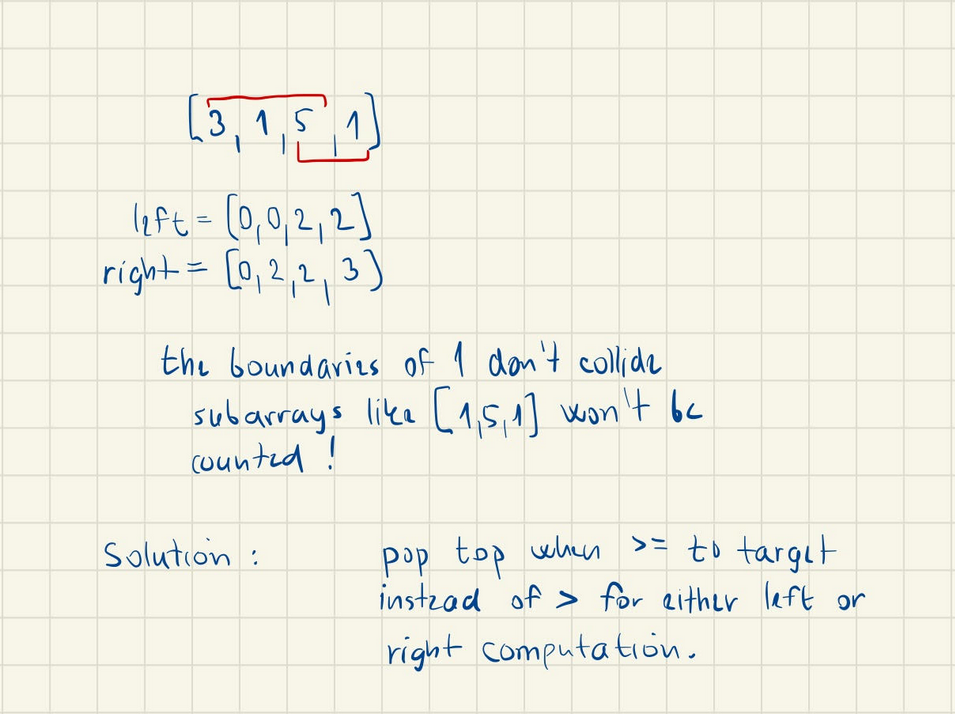 [3, 1, 5, 1]
left = [0, 0, 2, 2]
right = [0, 2, 2, 3]
the boundaries of 1 don't collide
subarrays like [1,5,1] won't be
counted !
Solution : pop top when >= to target
instead of > for either left or
right computation.